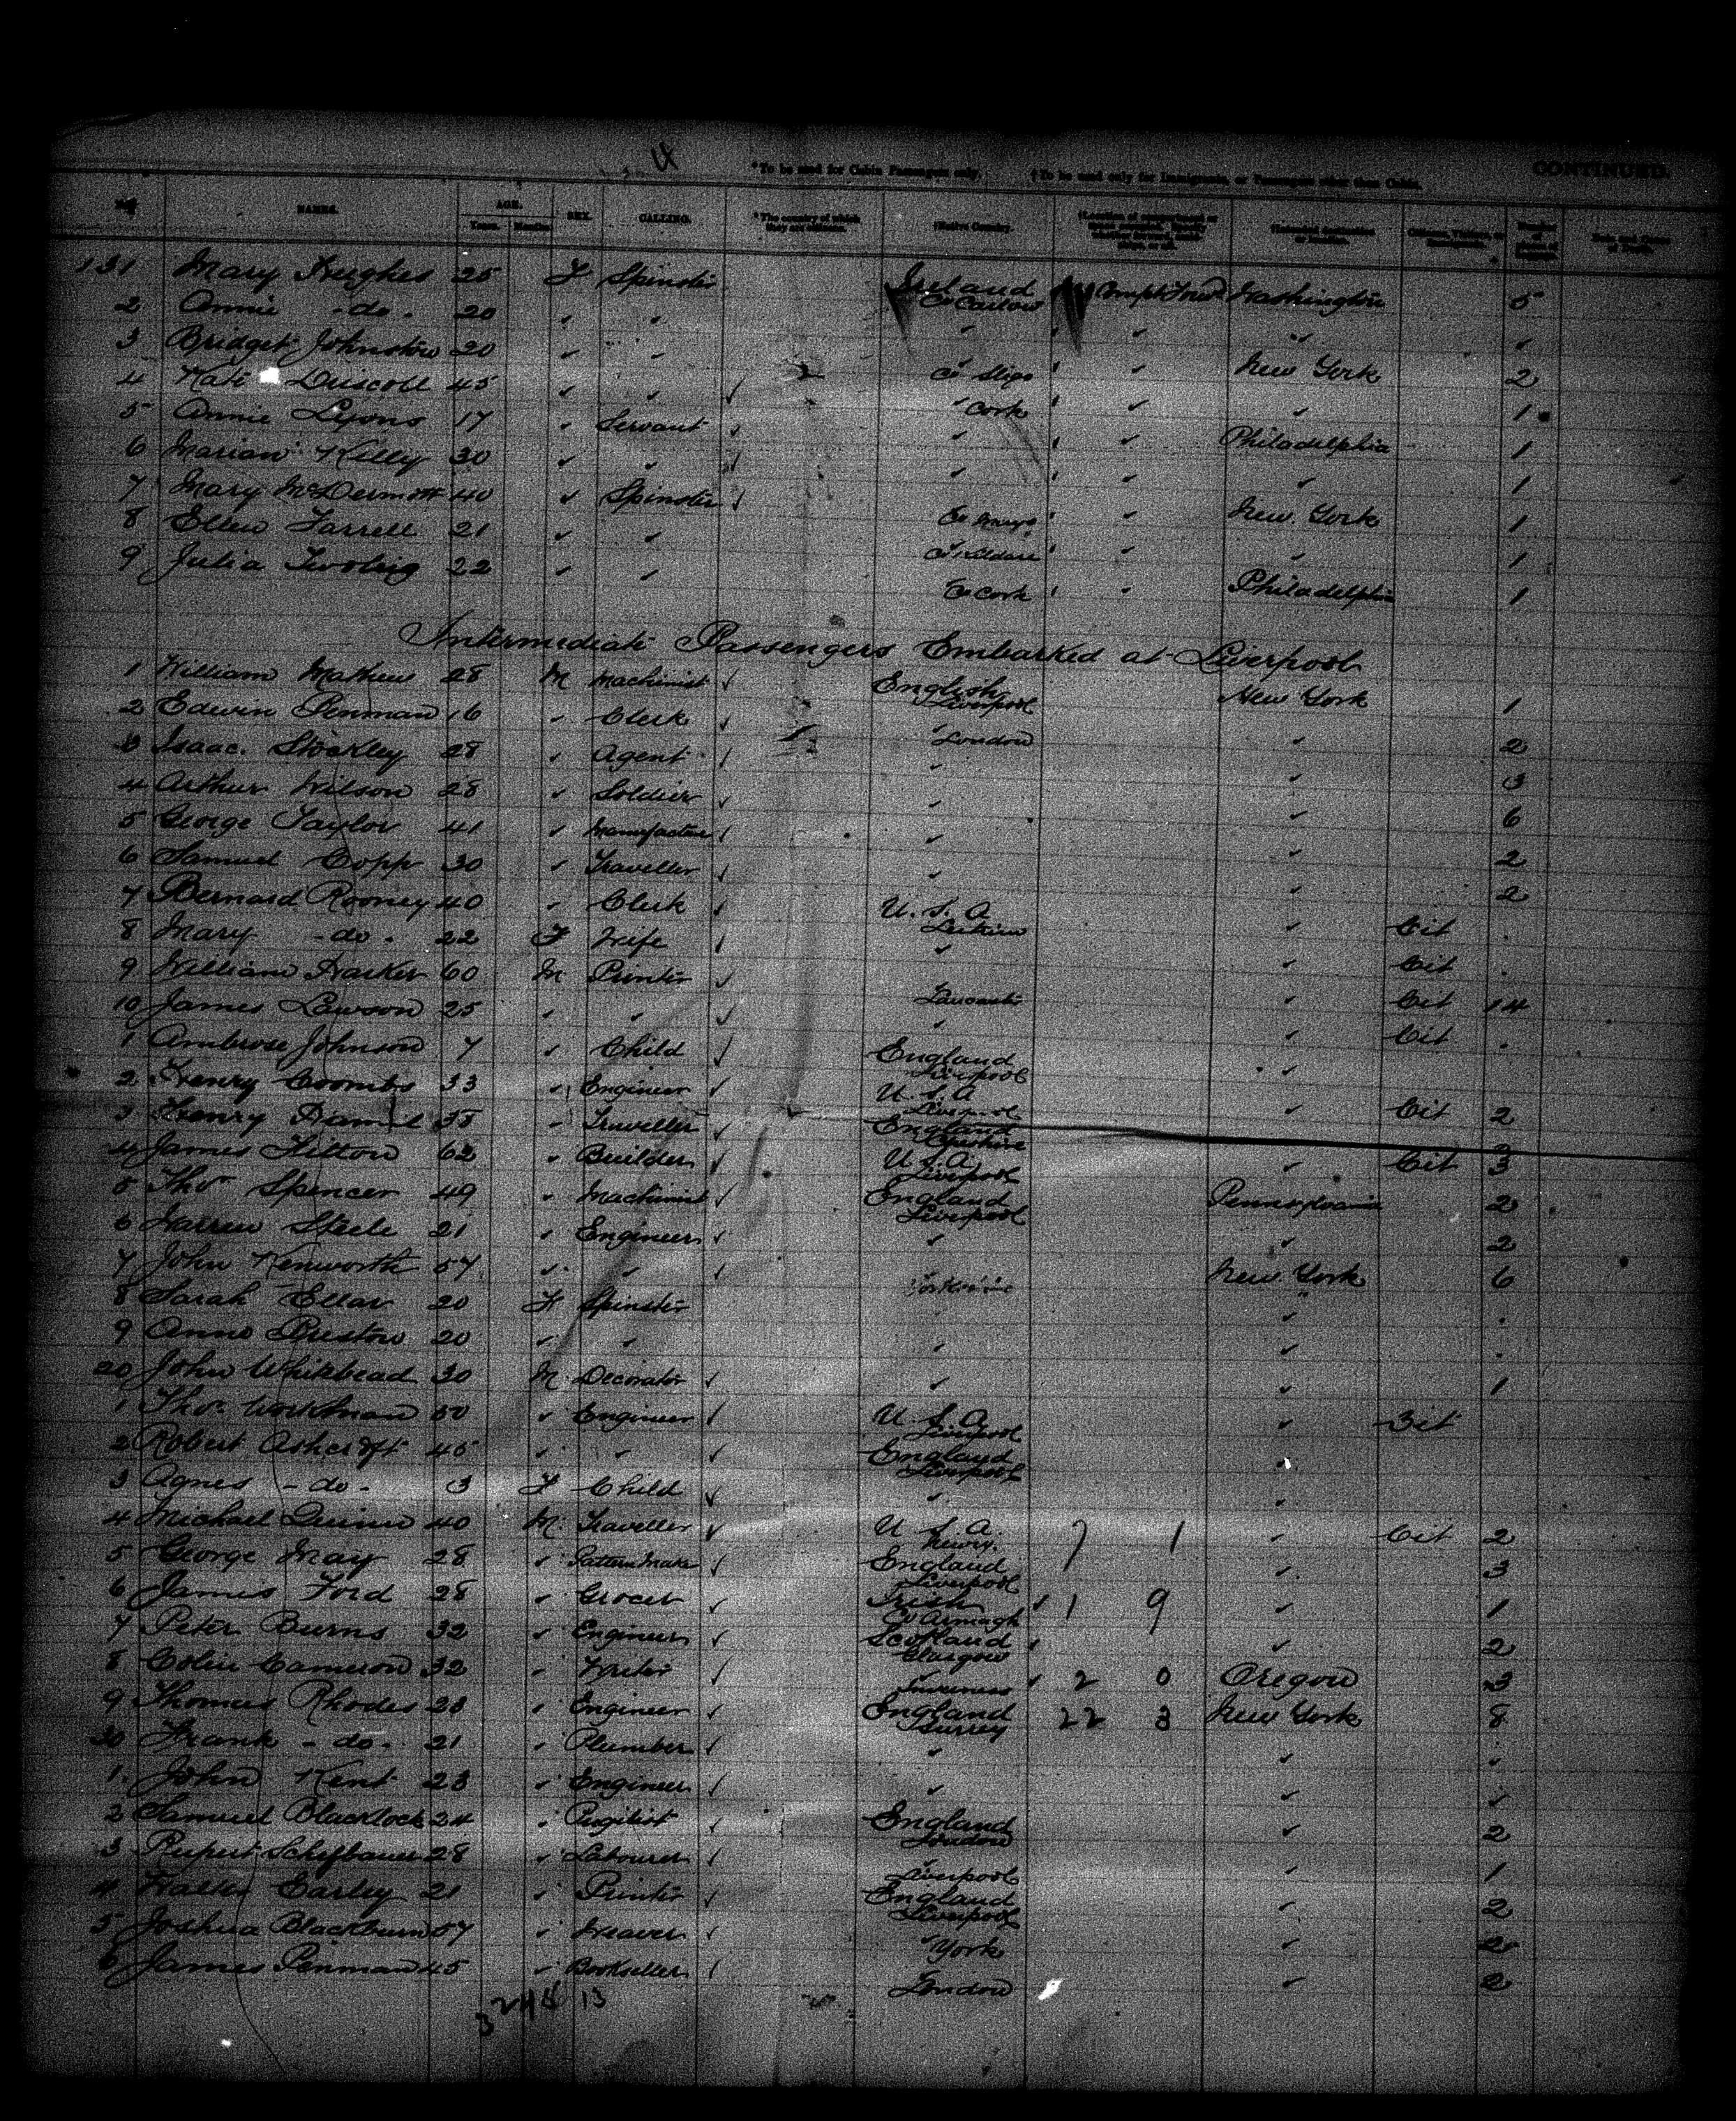 4
*To be used for Cabin Passengers only. †To be used only for Immigrants, or Passengers other than Cabin. CONTINUED.
NAMES. AGE. SEX. CALLING. *The country of which they are citizens. †Native Country.
Years. Months.
131 Mary Hughes 25 F Spinster Ireland Co Carlow Washington 5
2 Annie - do - 20 " " " " " "
3 Bridget Johnston 20 " " Co Sligo " New York 2
4 Kate Driscoll 45 " " " Cork " " 1
5 Annie Lyons 17 " Servant " " Philadelphia 1
6 Marian Kelly 30 " " " " " 1
7 Mary McDermott 40 " Spinster Co Mayo " New York 1
8 Ellen Farrell 21 " " Co Kildare " " 1
9 Julia 22 " " Co Cork " Philadelphia 1
Intermediate Passengers Embarked at Liverpool
1 William Mathew 28 M Machinist English Liverpool New York 1
2 Edwin Penman 16 " Clerk " London " 2
3 Isaac Stockley 28 " Agent " " 3
4 Arthur Wilson 28 " Soldier " " 6
5 George Taylor 41 " Manufacturer " " 2
6 Samuel Copp 30 " Traveller " " 2
7 Bernard Rooney 40 " Clerk U.S.A Leitrim " Cit .
8 Mary - do - 22 F Wife " " Cit .
9 William Harker 60 M Printer Lancaster " Cit 14
10 James Lawson 25 " " " " Cit .
1 Ambrose Johnson 7 " Child England Liverpool "
2 Henry Coombs 33 " Engineer U.S.A Liverpool " Cit 2
3 Henry 38 " Traveller England Cheshire
4 James Hilton 62 " Builder U.S.A. Liverpool " Cit 3
5 Thos Spencer 49 " Machinist England Liverpool Pennsylvania 2
6 Warren Steele 21 " Engineer " " 2
7 John Kenworth 57 " " New York 6
8 Sarah Ellar 20 F Spinster " .
9 Anne Preston 20 " " " " .
20 John Whitehead 30 M Decorator " " 1
1 Thos. Workman 50 " Engineer U.S.A. Liverpool " Cit
2 Robert Ashcroft 45 " " England Liverpool "
3 Agnes - do - 3 F Child " "
4 Michael Quinn 40 M. Traveller U.S.A. Newry. 7 1 " Cit 2
5 George May 28 " Pattern Maker England Liverpool " 3
6 James Ford 28 " Grocer Irish Co Armagh 1 9 " 1
7 Peter Burns 32 " Engineer Scotland Glasgow " 2
8 Colin Cameron 32 " Writer " Inverness 2 0 Oregon 3
9 Thomas Rhodes 23 " Engineer England Surrey 22 3 New York 8
30 Frank - do - 21 " Plumber " " "
1 John Kent 23 " Engineer " " "
2 Samuel Blacklock 24 " Pugilist England London " 2
3 Rupert 28 " Labourer " Liverpool " 1
4 Walter Earley 21 " Printer England Liverpool " 2
5 Joshua Blackburn 57 " Weaver " York " 2
6 James Penman 45 " Bookseller London " 2